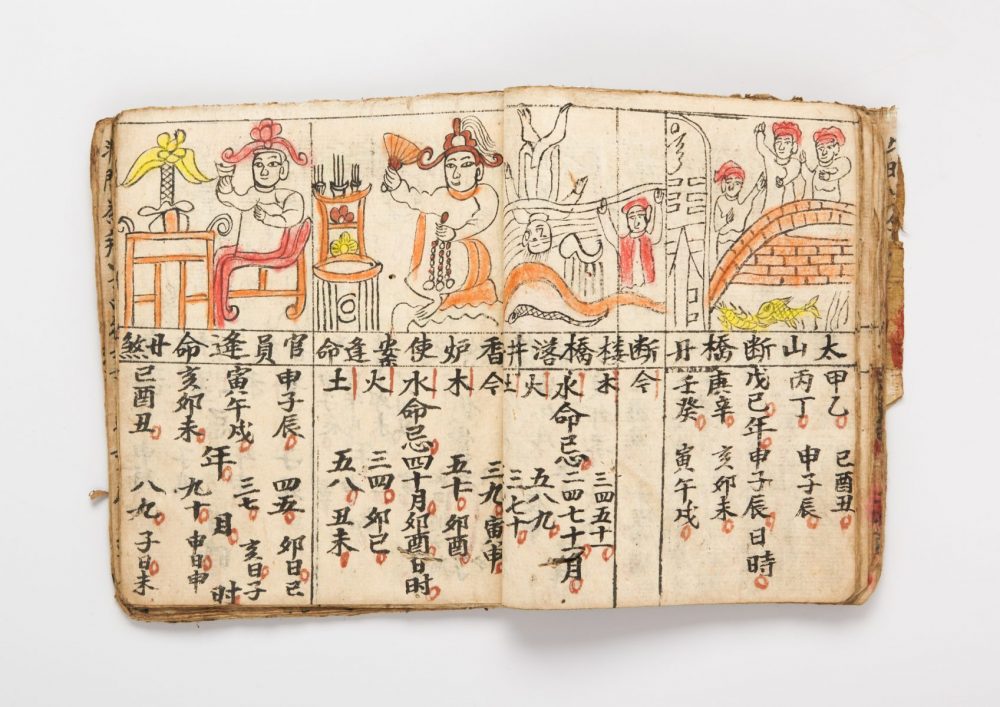 太山断橋廾
甲乙 己酉丑
丙丁 申子辰
戊己年申子辰日時
庚辛 亥卯未
壬癸 寅午戌
断橋落井
今
木 三四五十
水命忌二四七十一月
火 五八九
土 三七十
香炉使案逢命
今 三九寅申
木 五十卯酉
水命忌四十月卯酉日时
火 三四卯巳
土 五八丑未
官員逢命廾煞
申子辰 四五 卯日巳
寅午戌 三七 亥日子
年月时
亥卯未 九十 申日申
己酉丑 八九 子日未